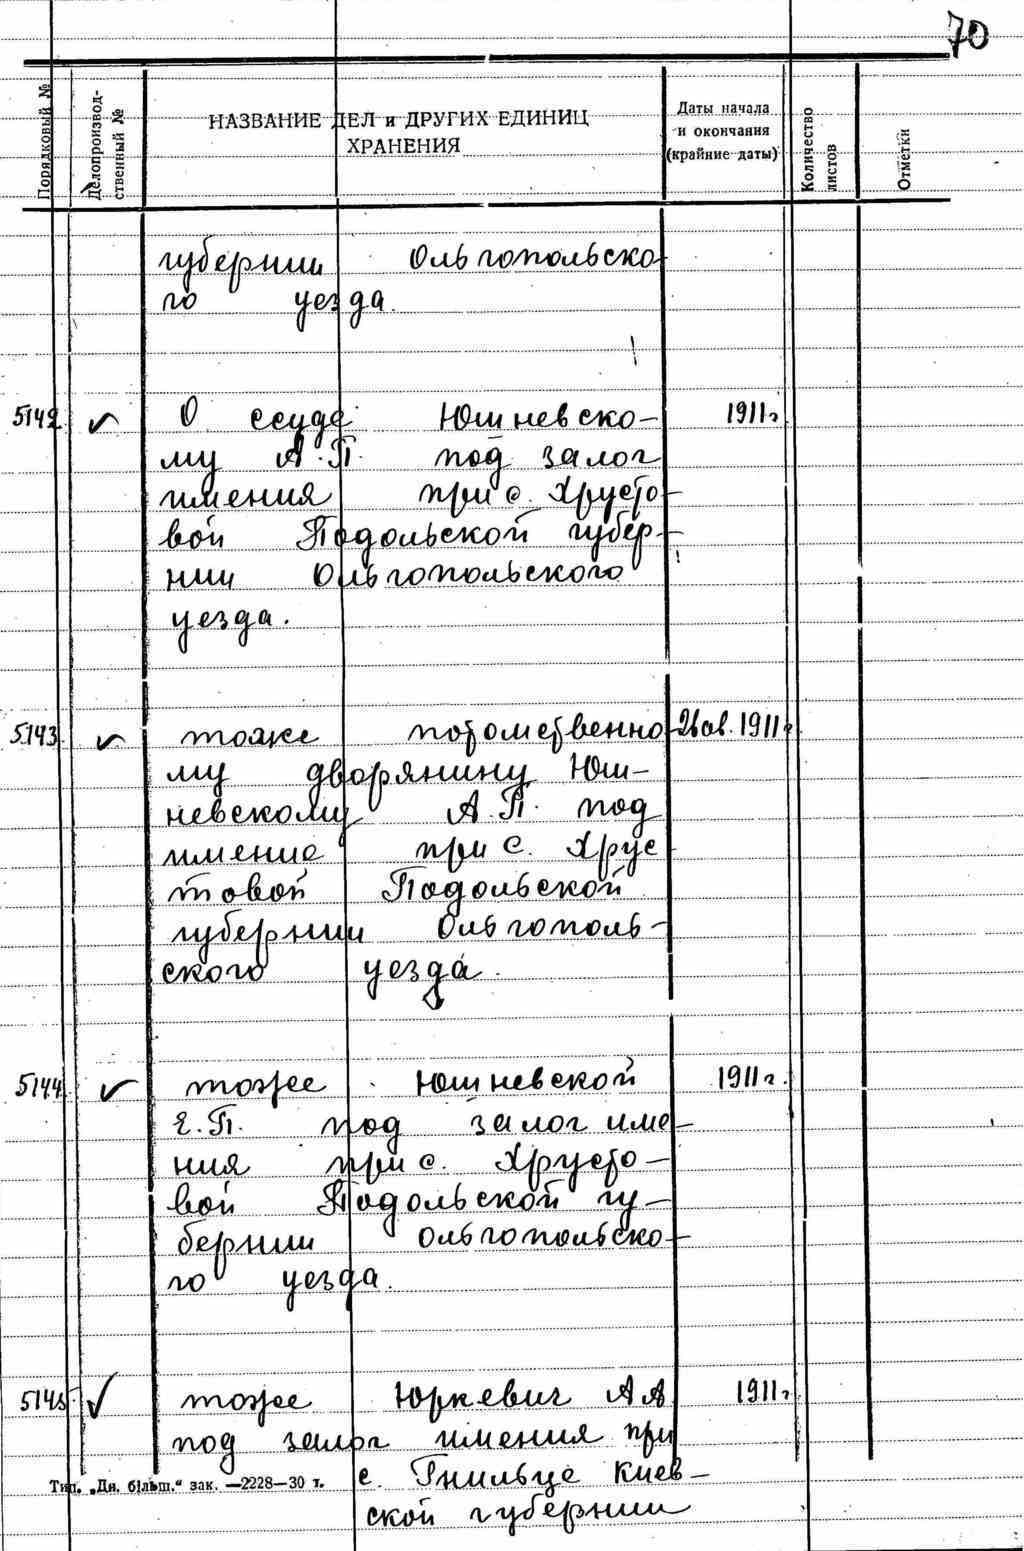 70
Порядковый №
Делопроизвод-
ственный №
НАЗВАНИЕ ДЕЛ и ДРУГИХ ЕДИНИЦ
ХРАНЕНИЯ
Даты начала
и окончания
(крайние даты)
Количество
листов
Отметки
губернии Ольгопольско-
го уезда.
5142 О ссуде Юшневско- 1911г
му А.П. под залог
имения при с. Хрусто-
вой Подольской губер-
нии Ольгопольского
уезда.
5143 тоже потомственно 1911г
му дворянину Юш-
невскому А.П. под
имение при с. Хрус
товой Подольской
губернии Ольгополь-
ского уезда.
5144 тоже Юшневской 1911г.
Е.П. под залог име-
ния при с. Хрусто-
вой Подольской гу-
бернии Ольгопольско-
го уезда.
5145 тоже Юркевич А А 1911г
под залог имения при
с. Гнильце Киев-
Тип. „Дн. більш.“ зак. —2228—30 т.
ской губернии